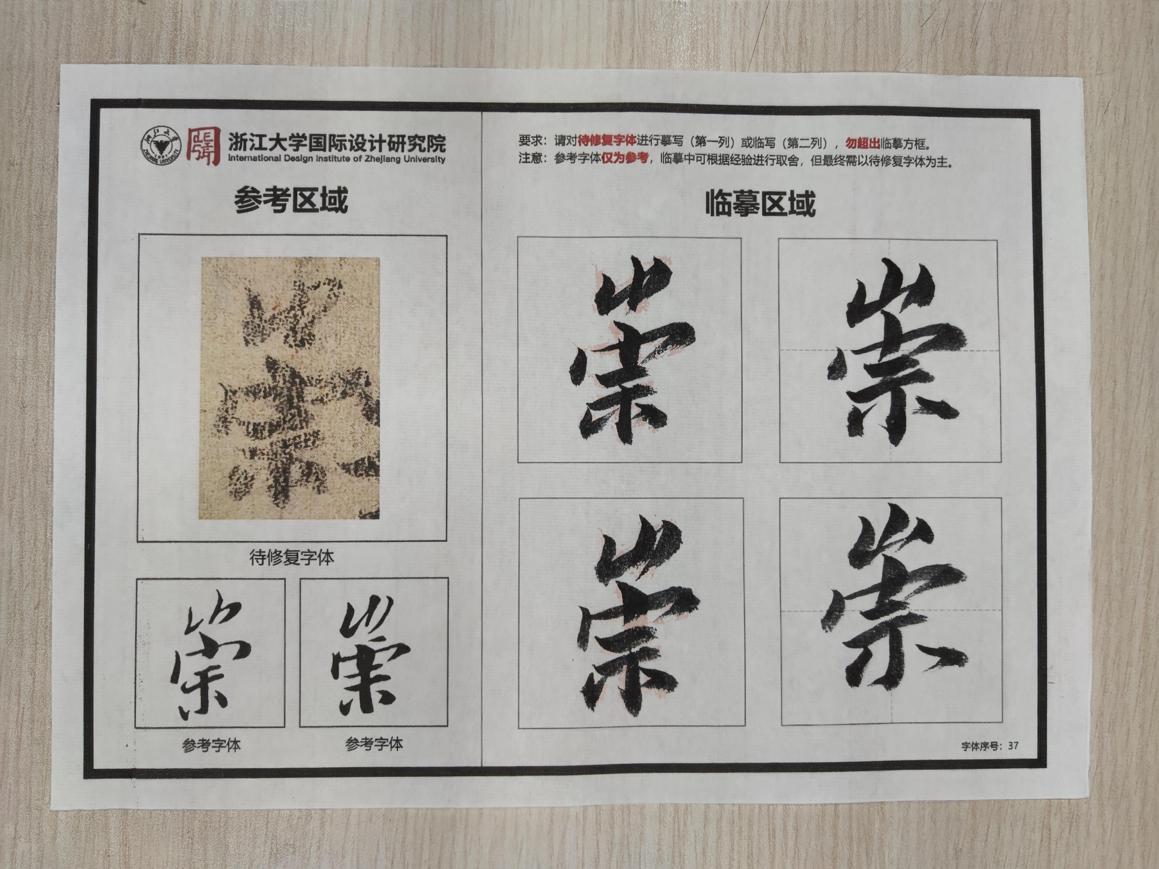 浙江大学国际设计研究院
International Design Institute of Zhejiang University
参考区域
崇
待修复字体
崇 崇
参考字体 参考字体
要求：请对待修复字体进行摹写（第一列）或临写（第二列），勿超出临摹方框。
注意：参考字体仅为参考，临摹中可根据经验进行取舍，但最终需以待修复字体为主。
临摹区域
崇 崇
崇 崇
字体序号：37